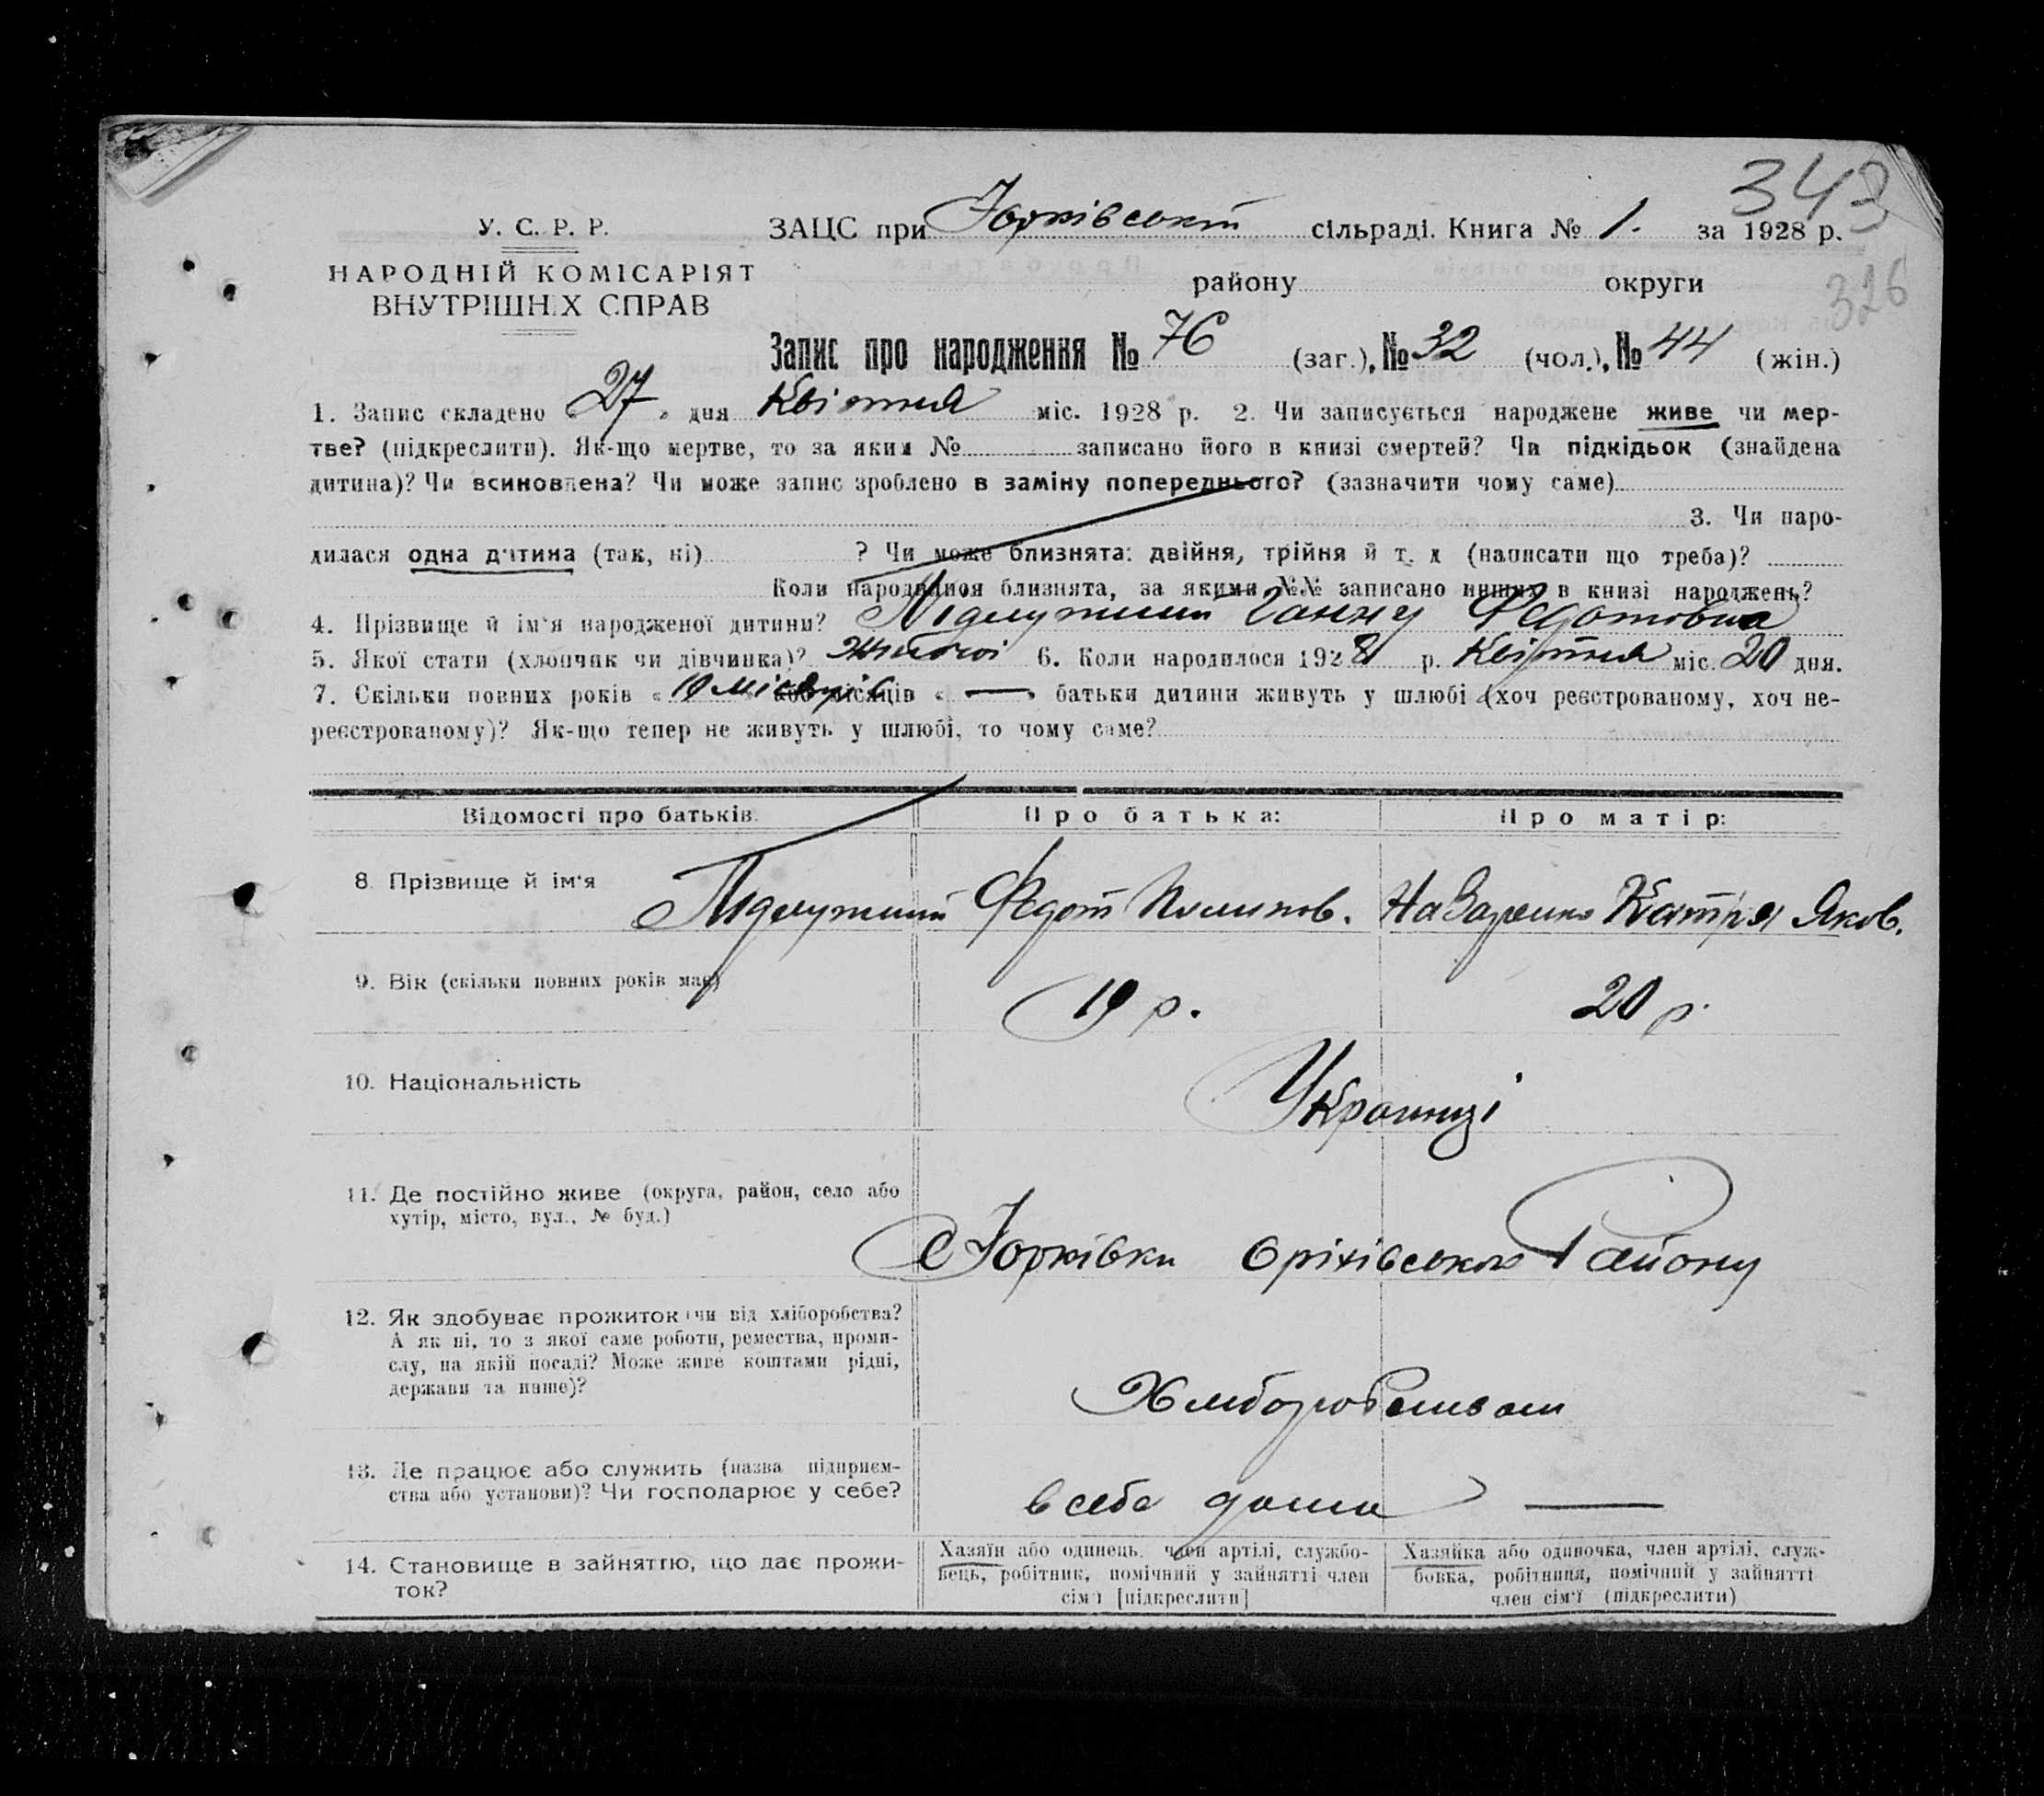 343
У. С. Р. Р.
ЗАЦС при Юрківській сільраді. Книга № 1. за 1928 р.
НАРОДНІЙ КОМІСАРІЯТ
ВНУТРІШНІХ СПРАВ
району округи
326
Запис про народження № 76 (заг.), № 32 (чол.), № 44 (жін.)
1. Запис складено „ 27 " дня Квітня міс. 1928 р. 2. Чи записується народжене живе чи мер-
тве? (підкреслити). Як-що мертве, то за яким № записано його в книзі смертей? Чи підкідьок (знайдена
дитина)? Чи всиновлена? Чи може запис зроблено в заміну попереднього? (зазначити чому саме)
3. Чи наро-
дилася одна дитина (так, ні) ? Чи може близнята: двійня, трійня й т. д (написати що треба)?
Коли народилися близнята, за якими №№ записано инших в книзі народжень?
4. Прізвище й ім'я народженої дитини? Ганну Федотовна
5. Якої стати (хлопчик чи дівчинка)? Жіночої 6. Коли народилося 1928 р. Квітня міс. 20 дня.
7. Скільки повних років « 10 місяців або місяців « — » батьки дитини живуть у шлюбі (хоч реєстрованому, хоч не-
реєстрованому)? Як-що тепер не живуть у шлюбі, то чому саме?
Відомості про батьків. Про батька: Про матір:
8. Прізвище й ім'я Федот Назаренко Катря Яков.
9. Вік (скільки повних років має) 19 р. 20 р.
10. Національність Українці
11. Де постійно живе (округа, район, село або
хутір, місто, вул., № буд.)
с Юрківки Оріхівського Району
12. Як здобуває прожиток (чи від хліборобства?
А як ні, то з якої саме роботи, ремества, проми-
слу, на якій посаді? Може живе коштами рідні,
держави та инше)?
13. Де працює або служить (назва підприєм-
ства або установи)? Чи господарює у себе?
в себе дома —
14. Становище в зайняттю, що дає прожи-
ток?
Хазяїн або одинець, член артілі, службо-
вець, робітник, помічний у зайнятті член
сім'ї [підкреслити]
Хазяйка або одиночка, член артілі, служ-
бовка, робітниця, помічний у зайнятті
член сім'ї (підкреслити)